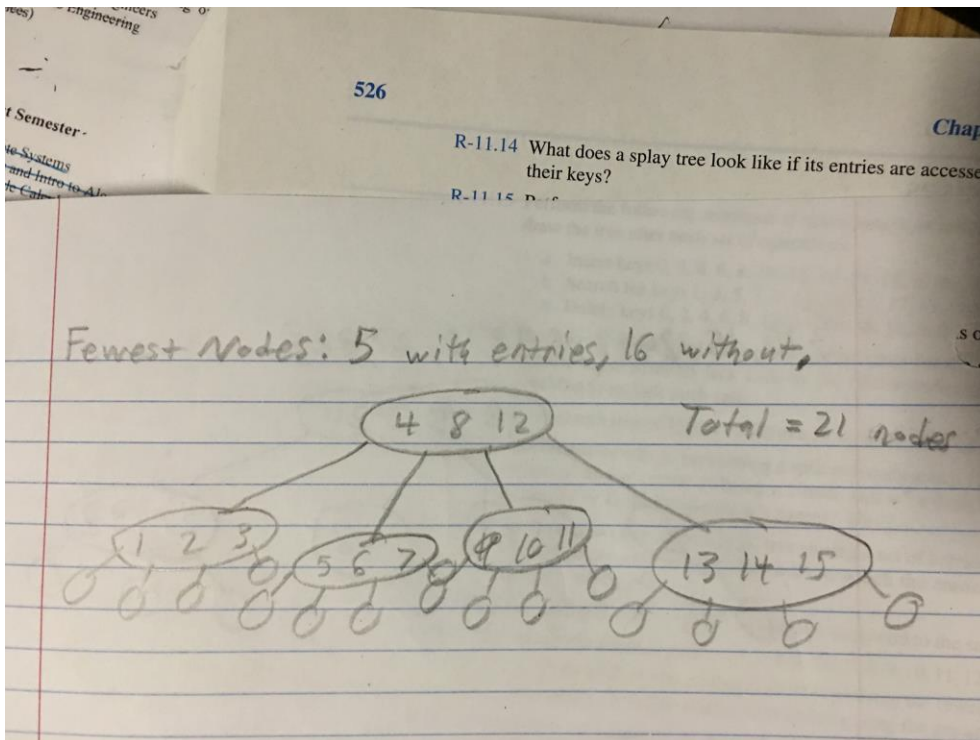 Engineering
t Semester-
Systems
and Intro to
526
Chap
R-11.14 What does a splay tree look like if its entries are accesse
their keys?
R-11.15
Fewest Nodes: 5 with entries, 16 without,
4 8 12
Total = 21 nodes
1 2 3
5 6 7
9 10 11
13 14 15